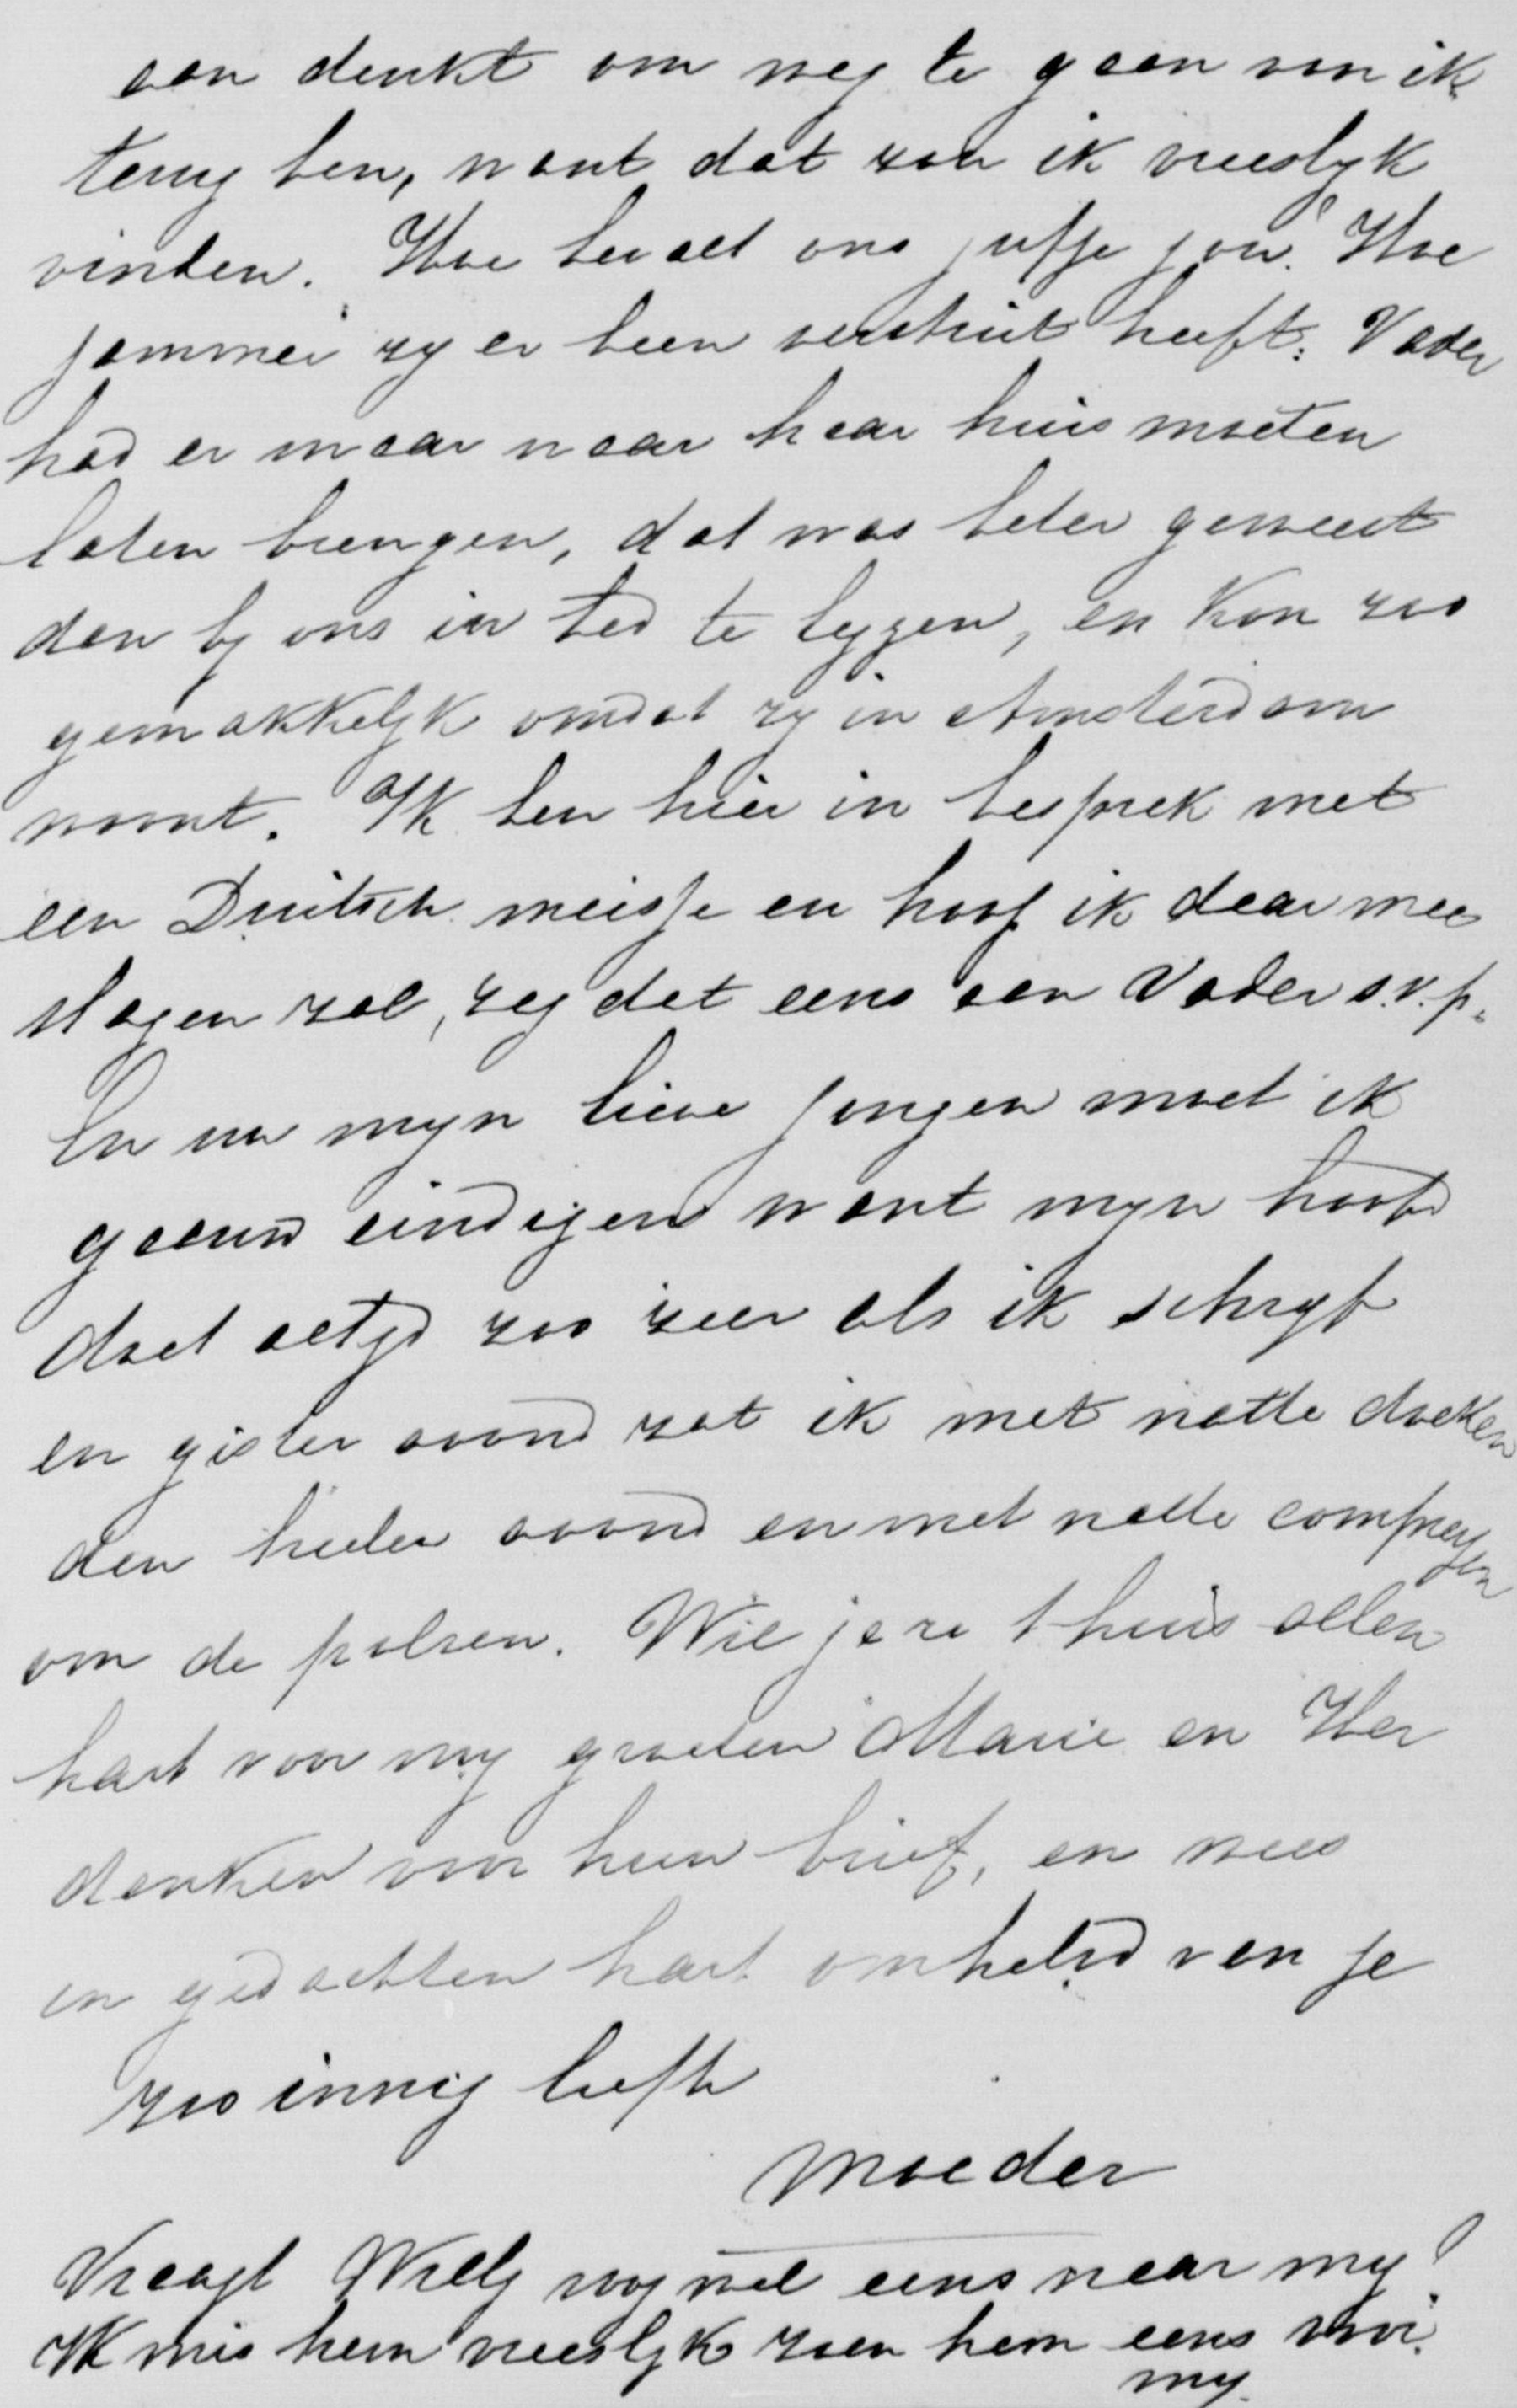 aan denkt om weg te gaan voor ik
terug ben, want dat zou ik vreeslyk
vinden. Hoe bevalt ons juffje jou? Hoe
jammer zy er been verstuit heeft. Vader
had er maar naar haar huis moeten
laten brengen, dat was beter geweest
dan by ons in bed te leggen, en kon zoo
gemakkelyk omdat zy in Amsterdam
woont. Ik ben hier in besprek met
een Duitsch meisje en hoop ik daar mee
slagen zal, zeg dat eens aan Vader s.v.p.
En nu myn lieve jongen moet ik
gaauw eindigen want myn hoofd
doet altyd zoo zeer als ik schryf
en gister avond zat ik met natte doeken
den heelen avond en met natte compressen
om de polsen. Wil je ze thuis allen
hart voor my groeten Marie en Her
danken voor hun brief, en wees
in gedachten hart omhelsd van je
zoo innig liefh
Moeder
Vraagt Willy nog wel eens naar my?
Ik mis hem vreeslyk zoen hem eens voor
my.